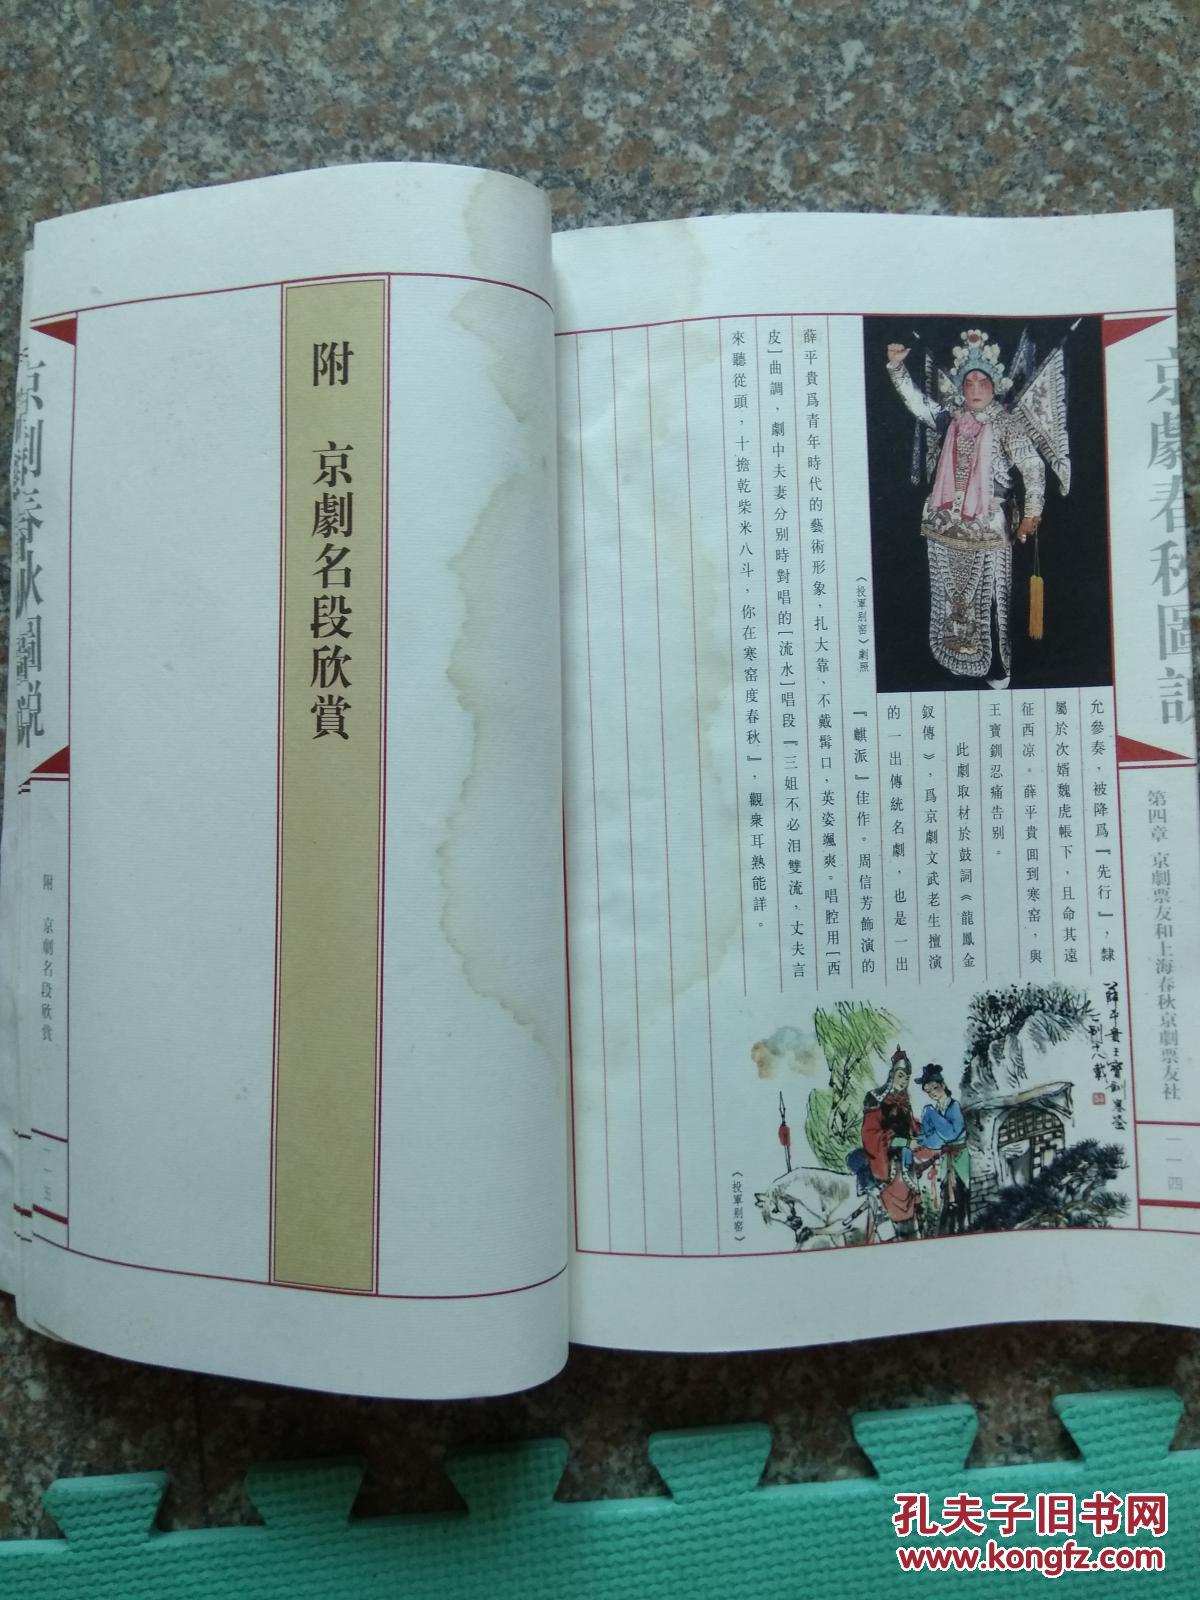 京劇春秋圖説
第四章 京劇票友和上海春秋京劇票友社
一一四
允參奏，被降爲『先行』，隸
屬於次婿魏虎帳下，且命其遠
征西凉。薛平貴回到寒窑，與
王寶釧忍痛告别。
此劇取材於鼓詞《龍鳳金
釵傳》，爲京劇文武老生擅演
的一出傳統名劇，也是一出
『麒派』佳作。周信芳飾演的
《投軍别窑》劇照
薛平貴爲青年時代的藝術形象，扎大靠、不戴髯口，英姿颯爽。唱腔用［西
皮］曲調，劇中夫妻分别時對唱的［流水］唱段『三姐不必泪雙流，丈夫言
來聽從頭，十擔乾柴米八斗，你在寒窑度春秋』，觀衆耳熟能詳。
薛平貴王寶釧寒窑
一别十八載
《投軍别窑》
附 京劇名段欣賞
京劇春秋圖説
附 京劇名段欣賞
一一五
孔夫子旧书网
www.kongfz.com